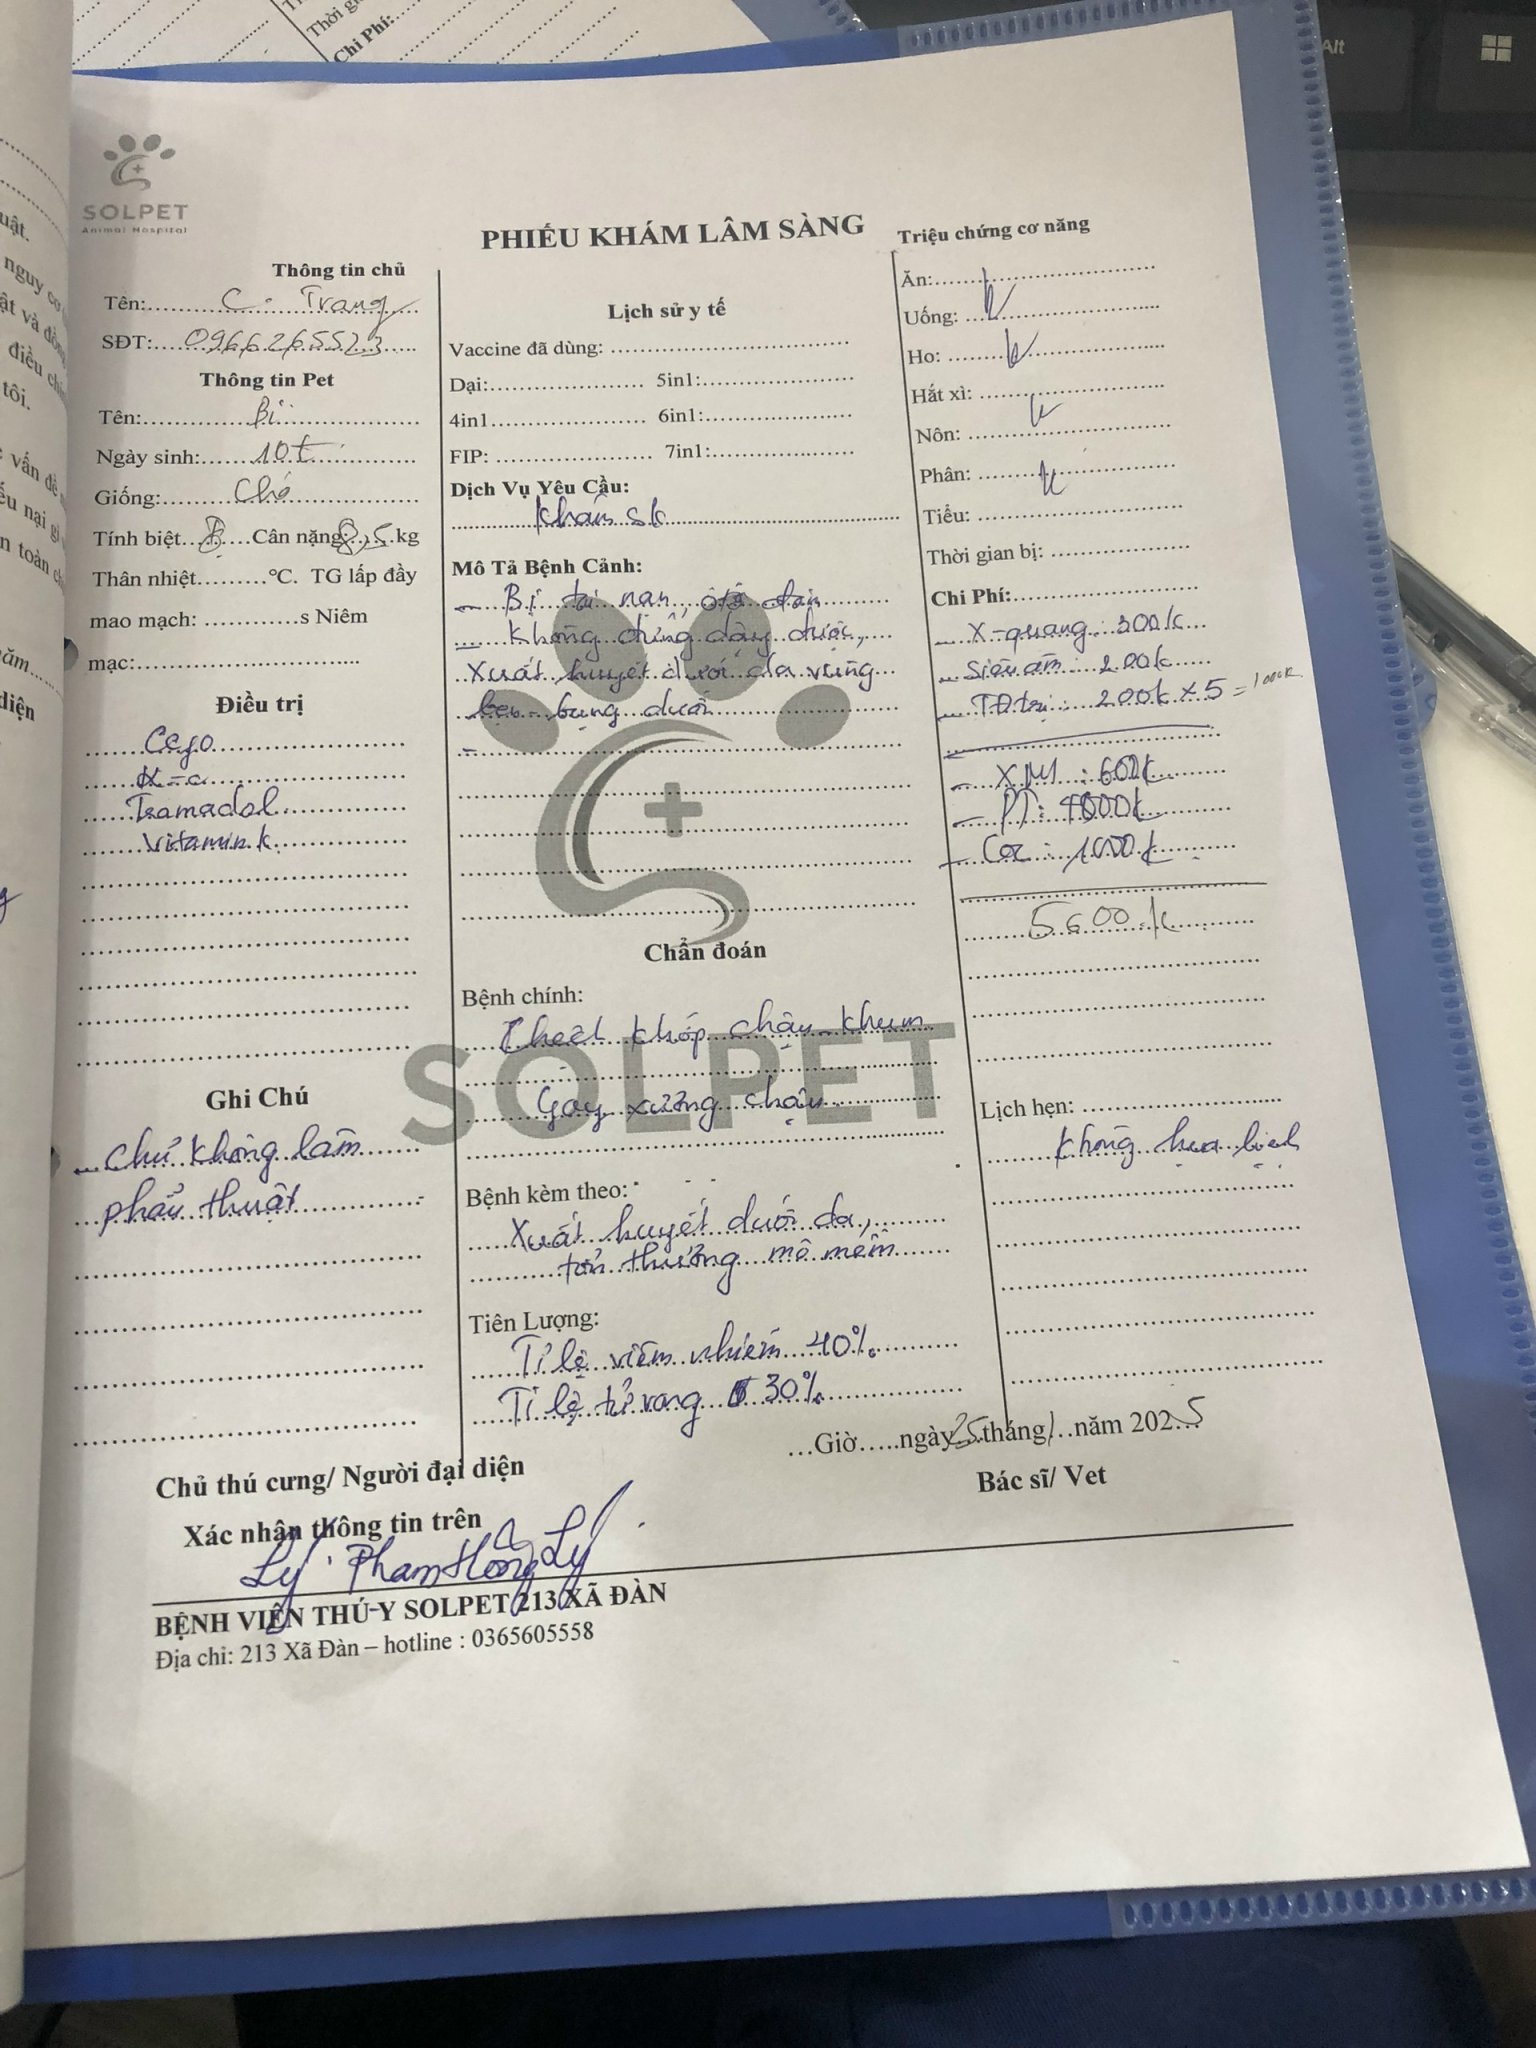 Thời gi
Chi Phí:
Alt
uật.
nguy cơ
ật và đồng
điều chỉ
tôi.
vấn đề
ếu nại gì
n toàn
năm
diện
SOLPET
Animal Hospital
PHIẾU KHÁM LÂM SÀNG
Thông tin chủ
Tên: C. Trang
SĐT: 0966265523
Thông tin Pet
Tên: Bi
Ngày sinh: 10t
Giống: Chó
Tính biệt Cân nặng: 8,5 kg
Thân nhiệt.........°C. TG lấp đầy
mao mạch: ............s Niêm
mạc:
Điều trị
Cefo
α-c
Tramadol
Vitamin k
Ghi Chú
- Chủ không làm
phẫu thuật
Lịch sử y tế
Vaccine đã dùng:
Dại: 5in1:
4in1 6in1:
FIP: 7in1:
Dịch Vụ Yêu Cầu:
Khám sk
Mô Tả Bệnh Cảnh:
- Bị tai nạn, ôtô
không đứng dậy được,
xuất huyết dưới da vùng
bẹn - bụng dưới
-
Chẩn đoán
Bệnh chính:
khớp chậu - khum
Gãy xương chậu
Bệnh kèm theo:
Xuất huyết dưới da,
tổn thương mô mềm
Tiên Lượng:
Tỉ lệ viêm nhiễm 40%
Tỉ lệ tử vong 30%
Triệu chứng cơ năng
Ăn:
Uống: k
Ho: k
Hắt xì:
Nôn: k
Phân: k
Tiểu:
Thời gian bị:
Chi Phí:
- X-quang: 300k
- Siêu âm: 200k
- TĐtrị: 200k x 5 = 1000k
- XM: 600k
- PT: 4000k
- Cọc: 1000k
5600k
Lịch hẹn:
Không hẹn lịch
...Giờ.....ngày 25 tháng 1 năm 2025
Chủ thú cưng/ Người đại diện
Bác sĩ/ Vet
Xác nhận thông tin trên
Lý Phạm Hồng Lý
BỆNH VIỆN THÚ Y SOLPET 213 XÃ ĐÀN
Địa chỉ: 213 Xã Đàn – hotline : 0365605558